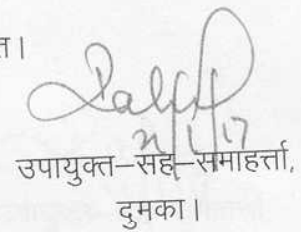 त।
उपायुक्त–सह–समाहर्त्ता,
दुमका।